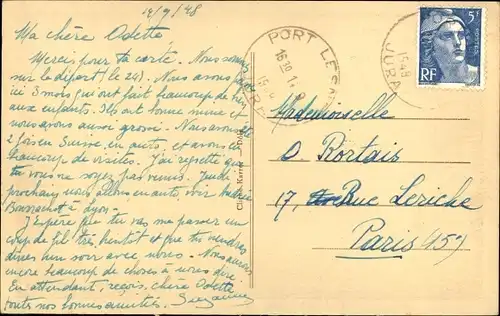 14/9/48
Ma chère Odette
Merci pour ta carte. Nous sommes
sur le départ (le 24). Nous avons
ici 3 mois qui ont fait beaucoup de bien
aux enfants. Ils ont bonne mine et
nous avons aussi grossi. Nous avons été
2 fois en Suisse en auto, et avons eu
beaucoup de visites. J'ai regretté que
tu vous ne soyez pas venus. Jeudi
prochain nous allons en auto, voir
à Lyon -
J'espère que tu vas me passer un
coup de fil très bientôt et que tu viendras
dîner un soir avec nous. Nous aurons
encore beaucoup de choses à nous dire
En attendant, reçois, chère Odette
toutes nos bonnes amitiés. Suzanne
PORT LESNEY
16 30
JURA
1948
JURA
5F
RF
Mademoiselle
O. Rortais
17, Rue Leriche
Paris (15e)